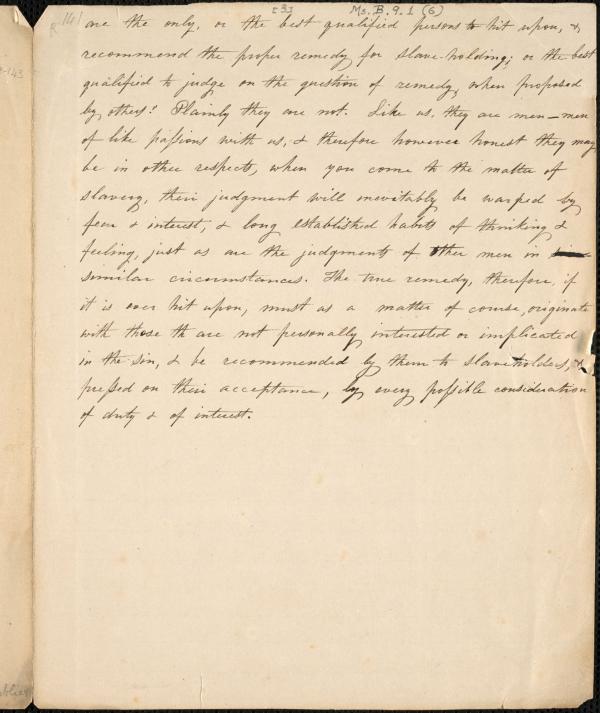 [3] Ms. B. 9. 1 (6)
141
are the only, or the best qualified persons to hit upon, &
recommend the proper remedy for slave-holding; or the best
qualified to judge on the question of remedy, when proposed
by others? Plainly they are not. Like us, they are men — men
of like passions with us, & therefore however honest they may
be in other respects, when you come to the matter of
slavery, their judgment will inevitably be warped by
fear & interest, & long established habits of thinking &
feeling, just as are the judgments of other men in
similar circumstances. The true remedy, therefore, if
it is ever hit upon, must as a matter of course, originate
with those th are not personally interested or implicated
in the sin, & be recommended by them to slaveholders, &
pressed on their acceptance, by every possible consideration
of duty & of interest.